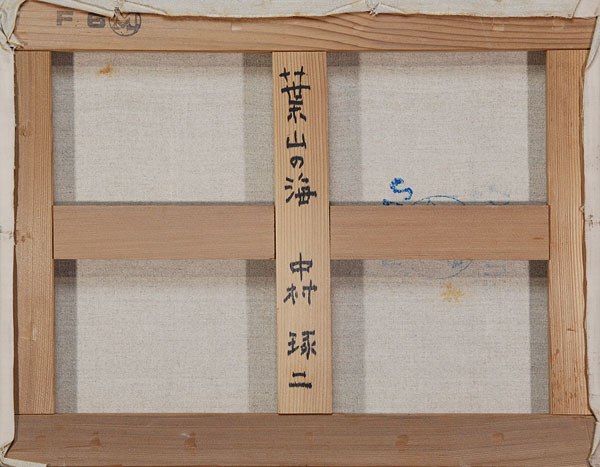 F6 M
葉山の海 中村 琢二